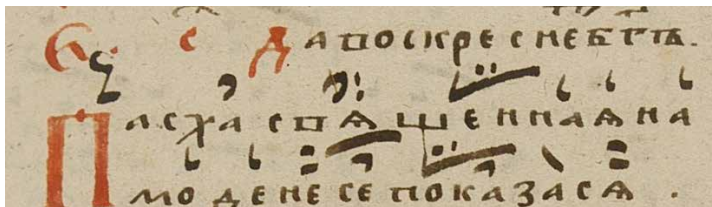 Є · с Да воскресне бг҃ъ.
Пасха свѧщеннаѧ на
мо денесе показасѧ .